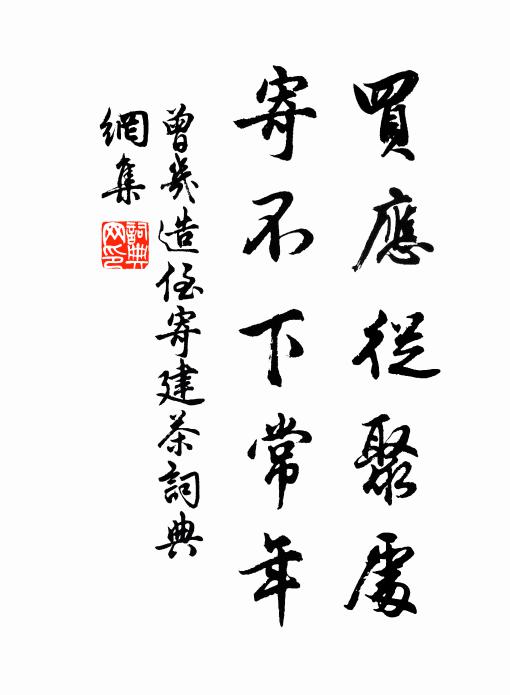 買應從聚處
寄不下常年
曾幾造侄寄建茶詞典
網集
詞典
网印